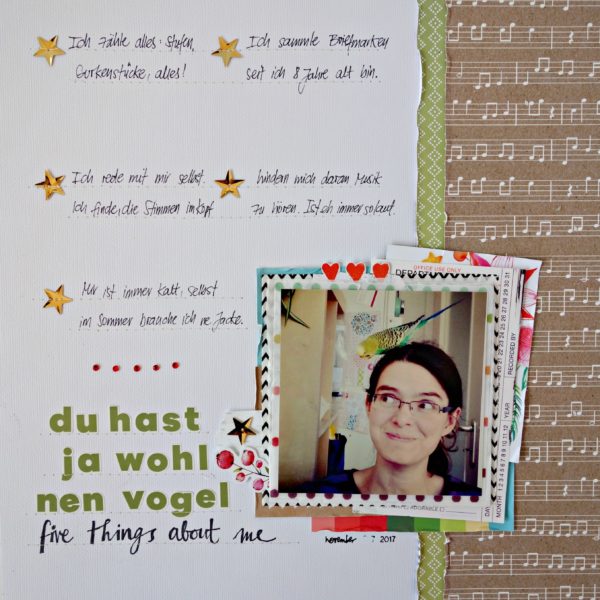 Ich zähle alles: Stufen,
Gurkenstücke, alles!
Ich sammle Briefmarken
seit ich 8 Jahre alt bin.
Ich rede mit mir selbst.
Ich finde, die Stimmen im Kopf
hindern mich daran Musik
zu hören. Ist eh immer so laut.
Mir ist immer kalt, selbst
im Sommer brauche ich ne Jacke.
du hast
ja wohl
nen vogel
five things about me
OFFICE USE ONLY
RECORDED BY
YEAR
MONTH 1 2 3 4 5 6 7 8 9 10 11 12
november 7 2017